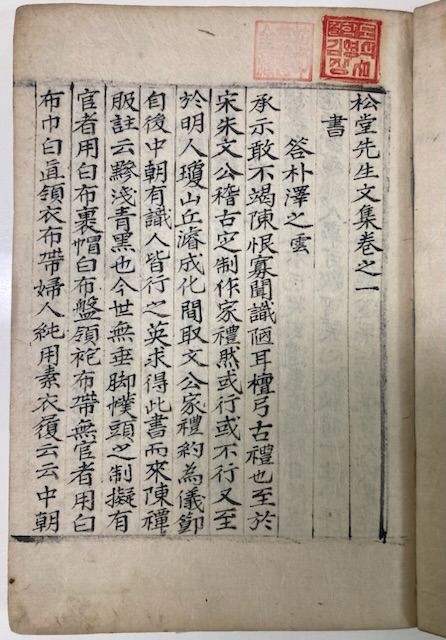 松堂先生文集卷之一
書
答朴澤之雲
承示敢不竭陳恨寡聞識陋耳檀弓古禮也至於
宋朱文公稽古定制作家禮然或行或不行又至
於明人瓊山丘濬成化間取文公家禮約為儀節
自後中朝有識人皆行之英求得此書而來陳禫
服註云黲淺青黑也今世無垂脚幞頭之制擬有
官者用白布裹帽白布盤領袍布帶無官者用白
布巾白直領衣布帶婦人純用素衣履云云中朝